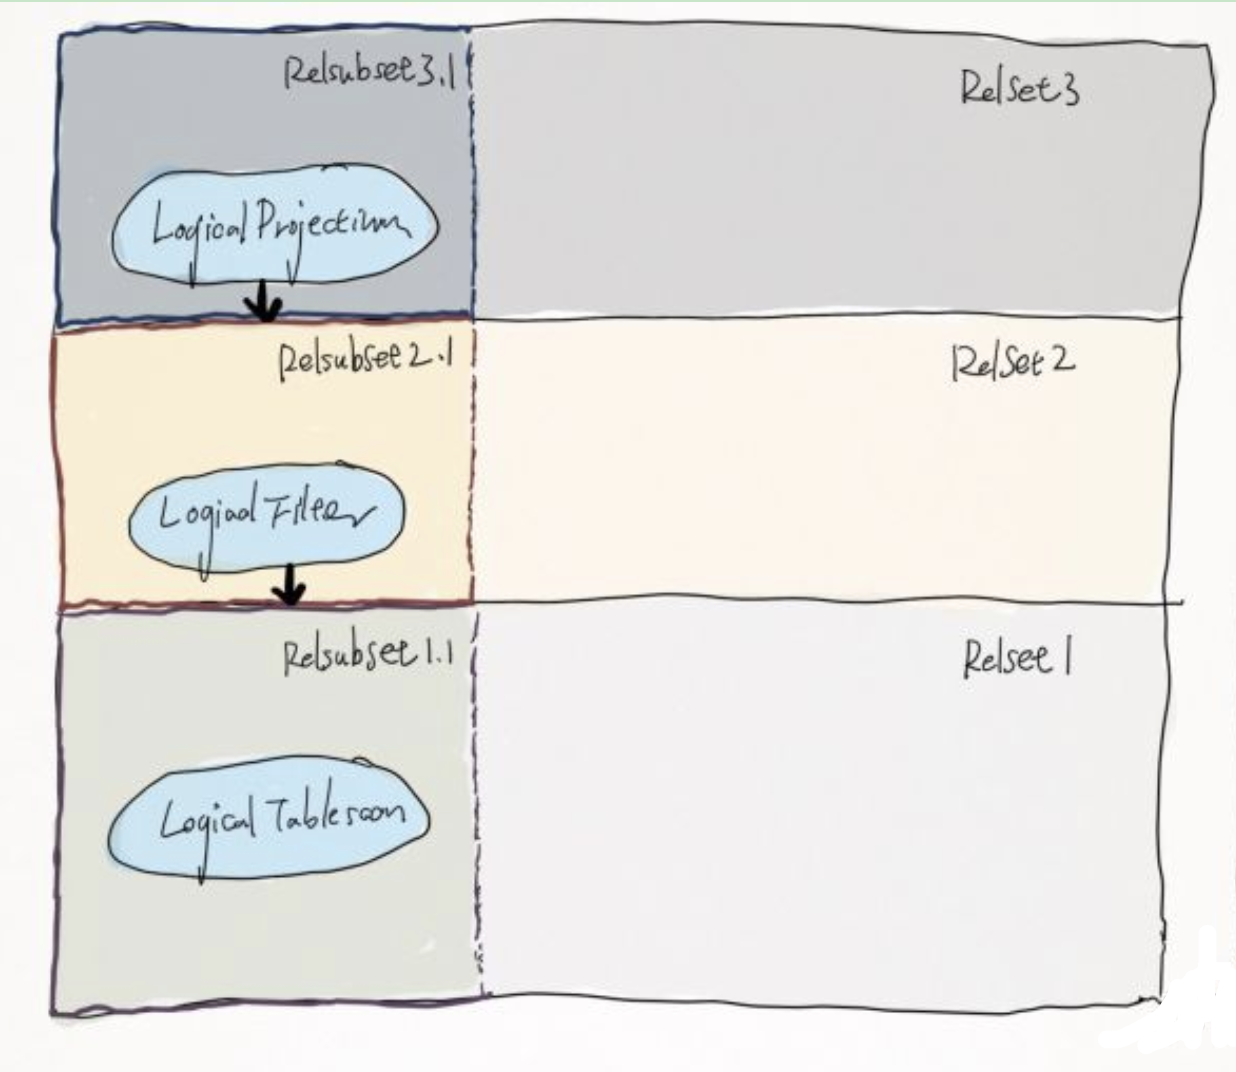 Relsubset3.1
RelSet3
Logical Projection
Relsubset2.1
RelSet2
Logical Filter
Relsubset1.1
Relset1
Logical Tablescan